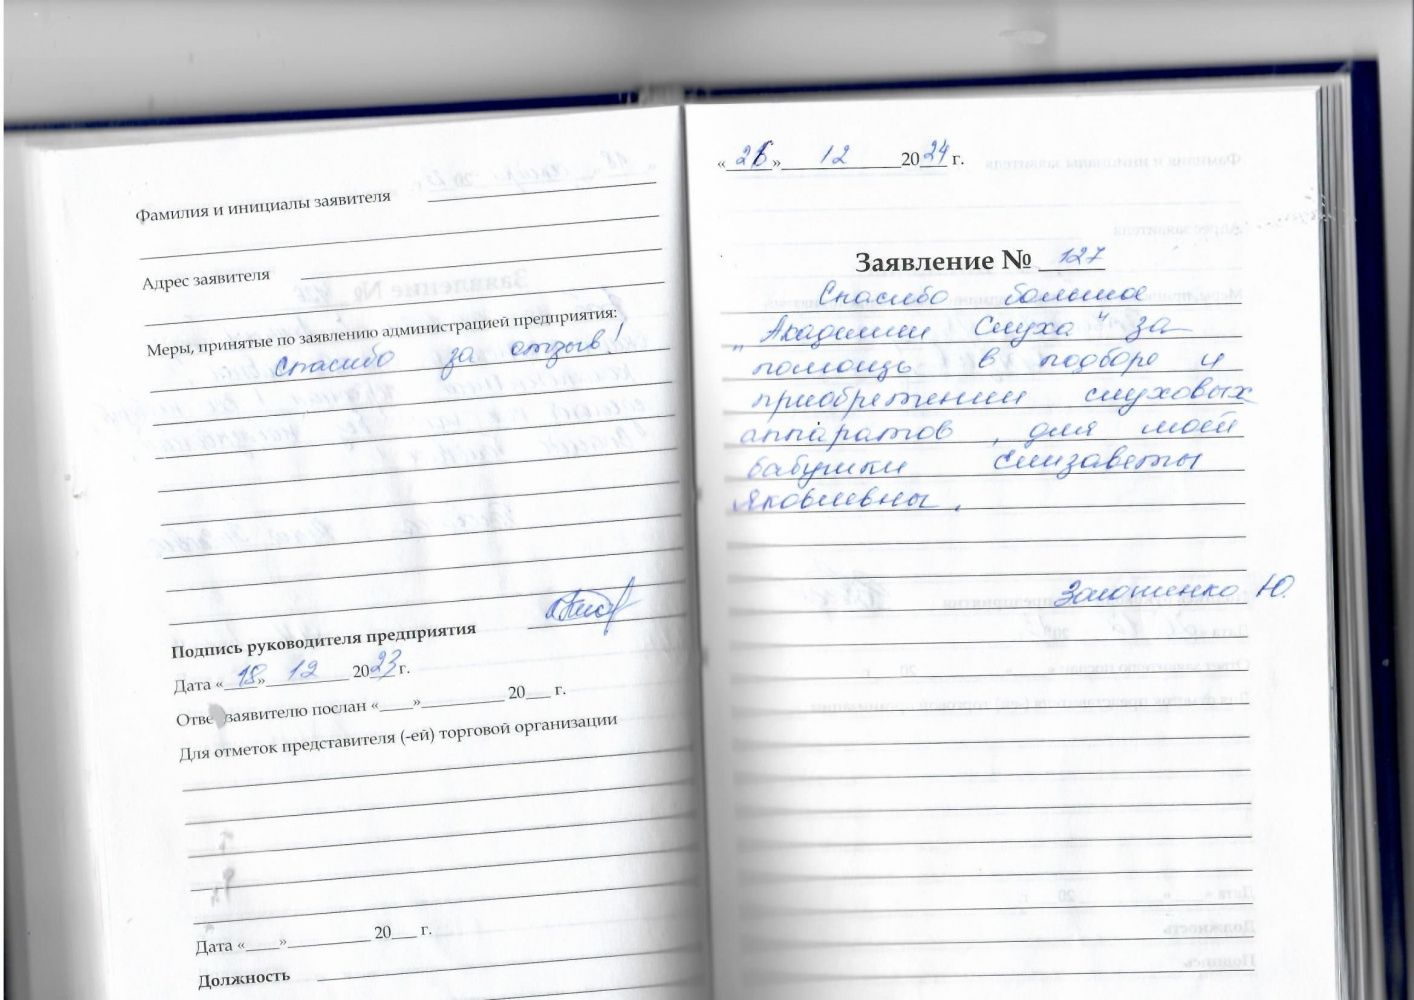 Фамилия и инициалы заявителя
Адрес заявителя
Меры, принятые по заявлению администрацией предприятия:
Спасибо за отзыв!
Подпись руководителя предприятия
Дата «18» 12 2023 г.
Ответ заявителю послан «____»__________ 20___ г.
Для отметок представителя (-ей) торговой организации
Дата «____»__________ 20___ г.
Должность
«26» 12 2024 г.
Заявление № 127
Спасибо большое
"Академии Слуха" за
помощь в подборе и
приобретении слуховых
аппаратов, для моей
бабушки Елизаветы
Яковлевны.
Ю.